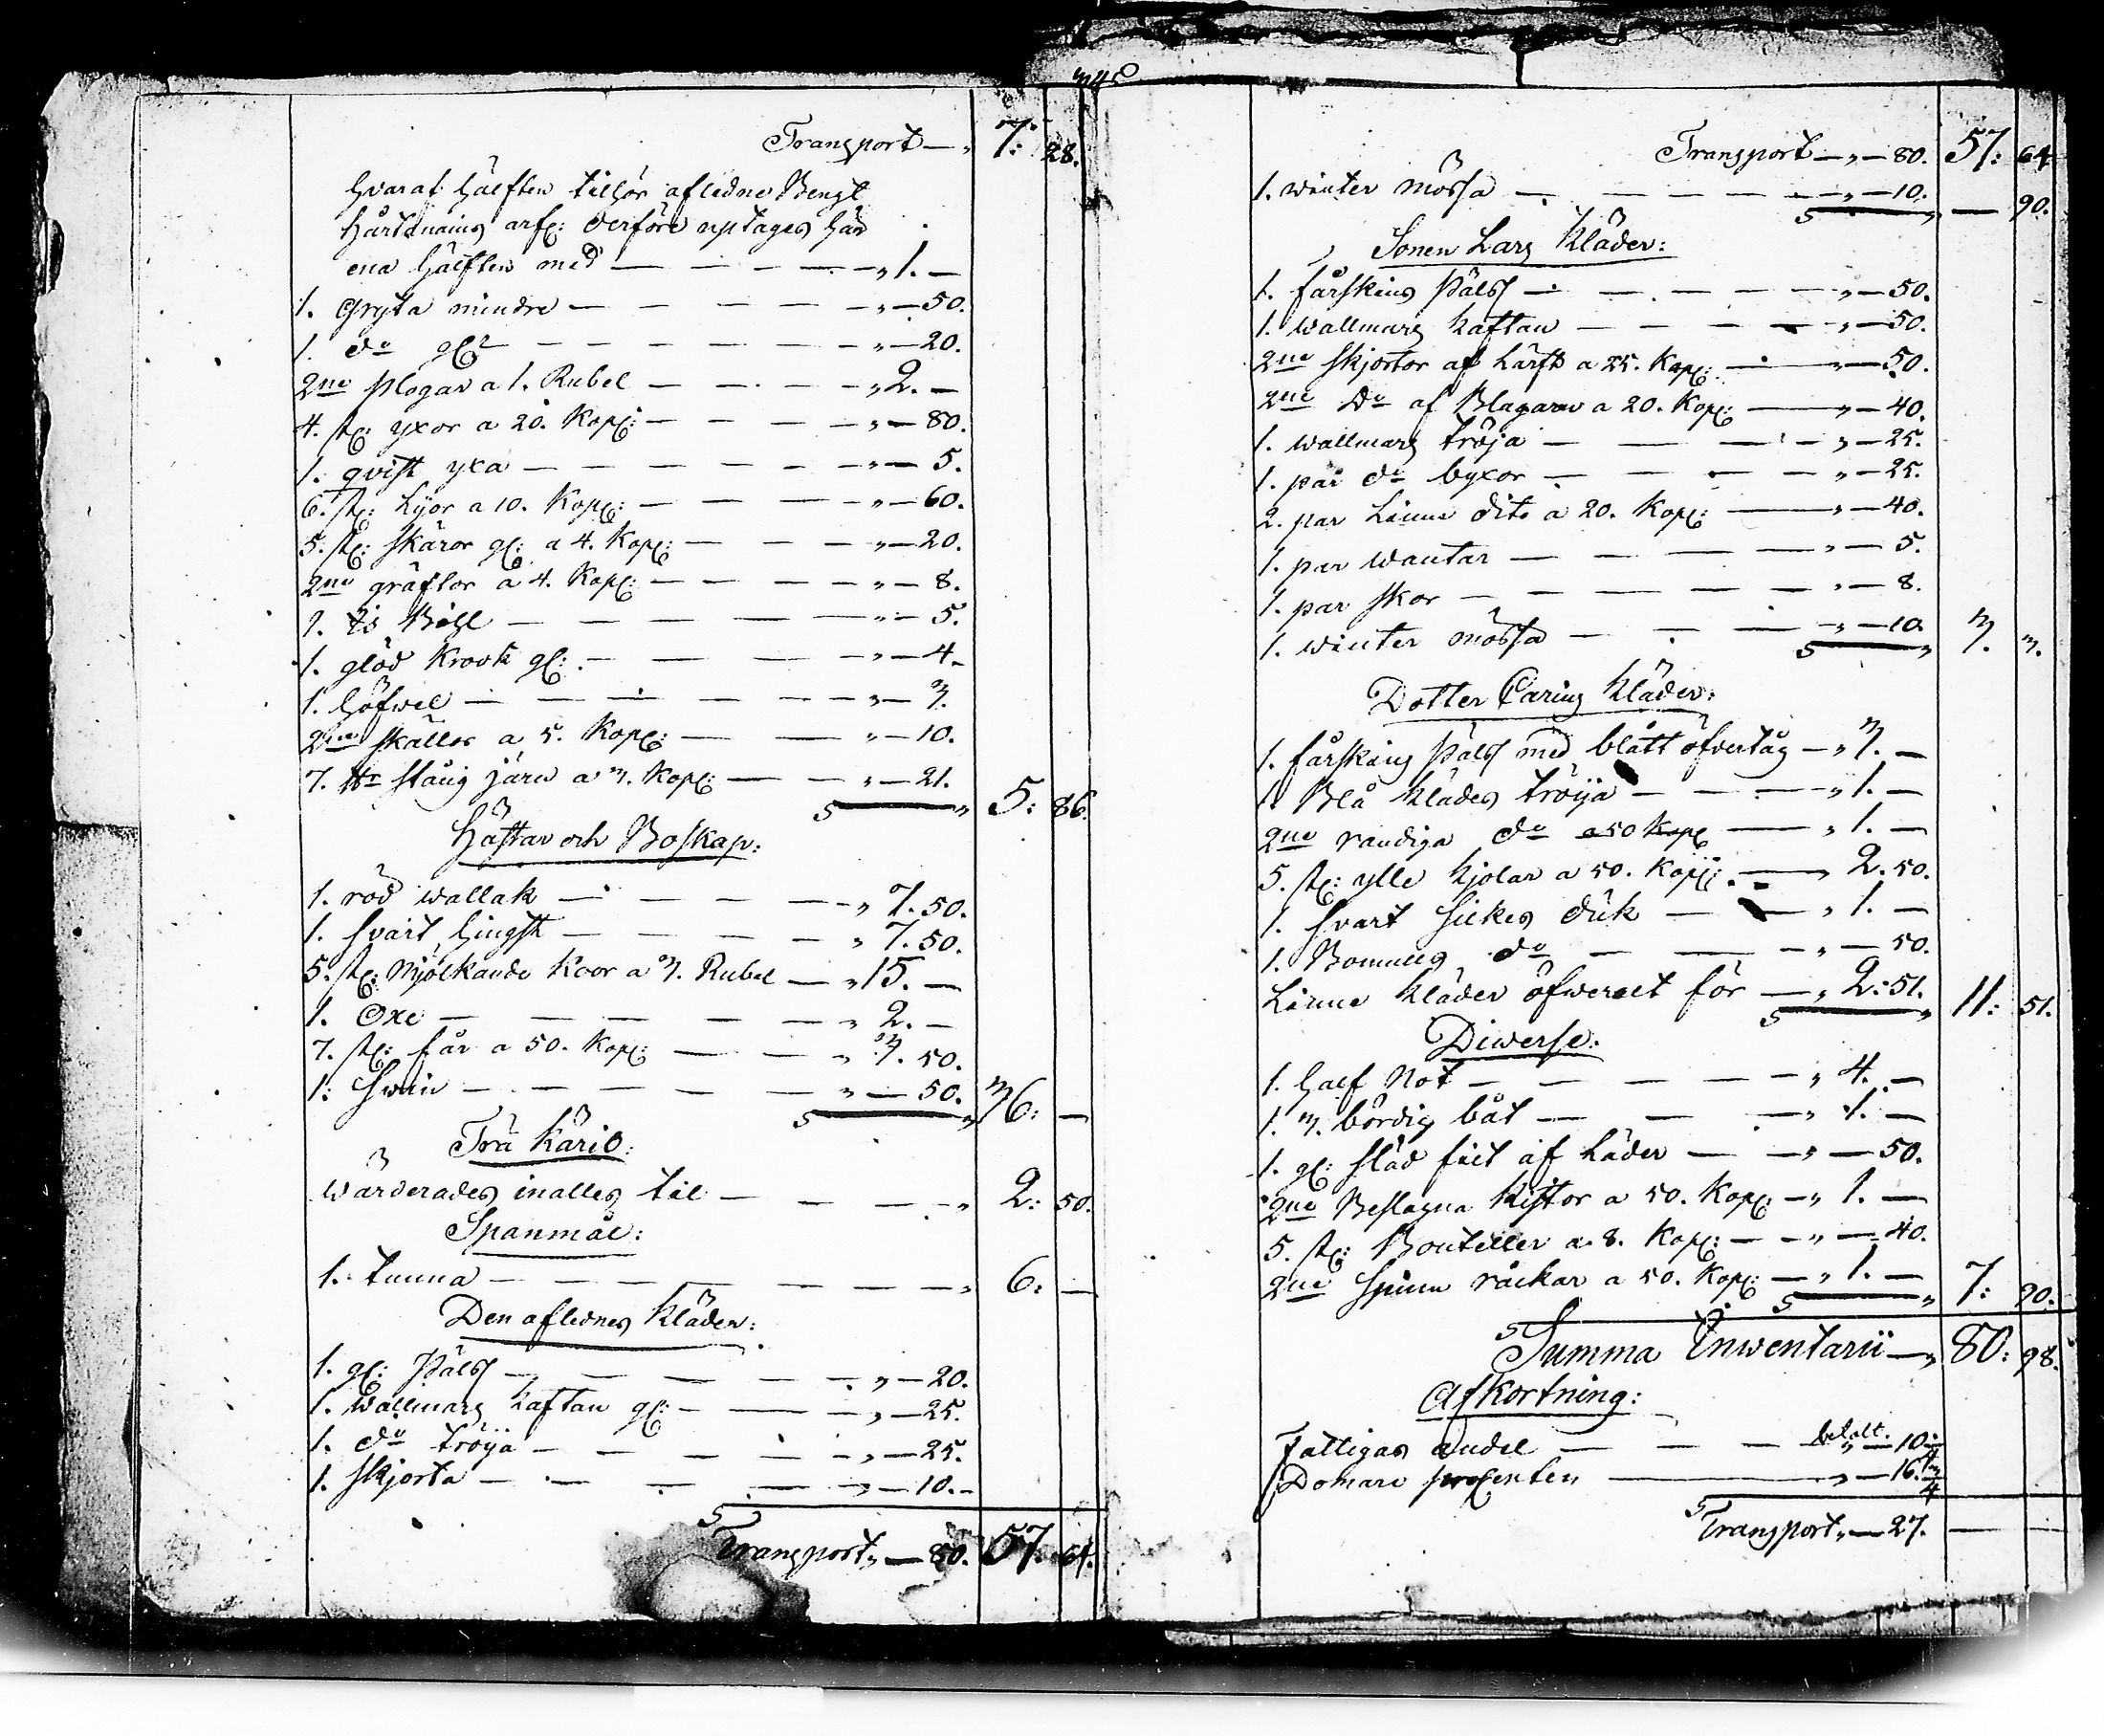 345
Transport — „ 7: 28.
hvaraf hälften tillhör aflidne Bengt
Hartmains arfg: derföre uptages här
ena hälften med — „ 1. —
1. gryta mindre — „ — 50.
1. do gl: — „ — 20.
2ne plogar a 1. Rubel — „ 2. —
4. st: yxor a 20. Kop: — „ — 80.
1. qvist yxa — „ — 5.
6. st: lijor a 10. Kop: — „ — 60.
5. st: skäror gl: a 4. Kop: — „ — 20.
2ne gräftor a 4. Kop: — „ — 8.
1. Is Bill — „ — 5.
1. glöd krook gl: — „ — 4.
1. höfwel — „ — 3.
2ne skällor a 5. Kop: — „ — 10.
7. ℔r stång järn a 3. Kop: — „ — 21.
S „ 5: 86.
Hästar och Boskap:
1. röd wallak — „ 7. 50.
1. svart hingst — „ 7. 50.
5. st: Mjölkande Koor a 3. Rubel — „ 15. —
1. Oxe — „ 2. —
7. st: får a 50. Kop: — „ 3. 50.
1. Swin — „ — 50.
S „ 36: —
Trä Käril:
Wärderades inalles til — „ 2: 50.
Spanmål:
1. tunna — „ 6. —
Den aflidnes Kläder:
1. gl: Päls — „ — 20.
1. wallmars kaftan gl: — „ — 25.
1. do tröija — „ — 25.
1. skjorta — „ — 10. —
S
Transport „ — 80. 57. 64.
Transport — „ — 80. 57: 64
1. winter mössa — „ — 10.
S „ — 90.
Sonen Lars Kläder:
1. fårskins Päls — „ — 50.
1. wallmars kaftan — „ — 50.
2ne skjortor af lärft a 25. Kop: — „ — 50.
2ne do af Blagarn a 20. Kop: — „ — 40.
1. wallmars tröja — „ — 25.
1. par do byxor — „ — 25.
2. par Linne dito a 20. Kop: — „ — 40.
1. par wantar — „ — 5.
1. par skor — „ — 8.
1. winter mössa — „ — 10.
S „ 3. 3.
Dotter Carins Kläder:
1. fårskins Päls med blått öfvertåg — „ 3. —
1. Blå klädes tröija — „ 1. —
2ne randiga do a 50 Kop — „ 1. —
5. st: ylle kjolar a 50. Kop: — „ 2. 50.
1. svart silkes duk — „ 1. —
1. Bomulls do — „ — 50.
Linne kläder öfweralt för — „ 2: 51.
S „ 11: 51.
Diwerse:
1. half Not — „ 4. —
1. 3. bördig båt — „ 1. —
1. gl: släd fäll af Läder — „ — 50.
2ne Beslagna kistor a 50. Kop: — „ 1. —
5. st: Bouteller a 8. Kop: — „ — 40.
2ne Spinn råckar a 50. Kop: — „ 1. —
S „ 7: 90.
S
Summa Inwentarii — „ 80: 98.
Afkortning:
Fattigas andel — betalt. „ — 10 1/4
Domare procenten — „ — 16. 3/4
S
Transport „ — 27. — —